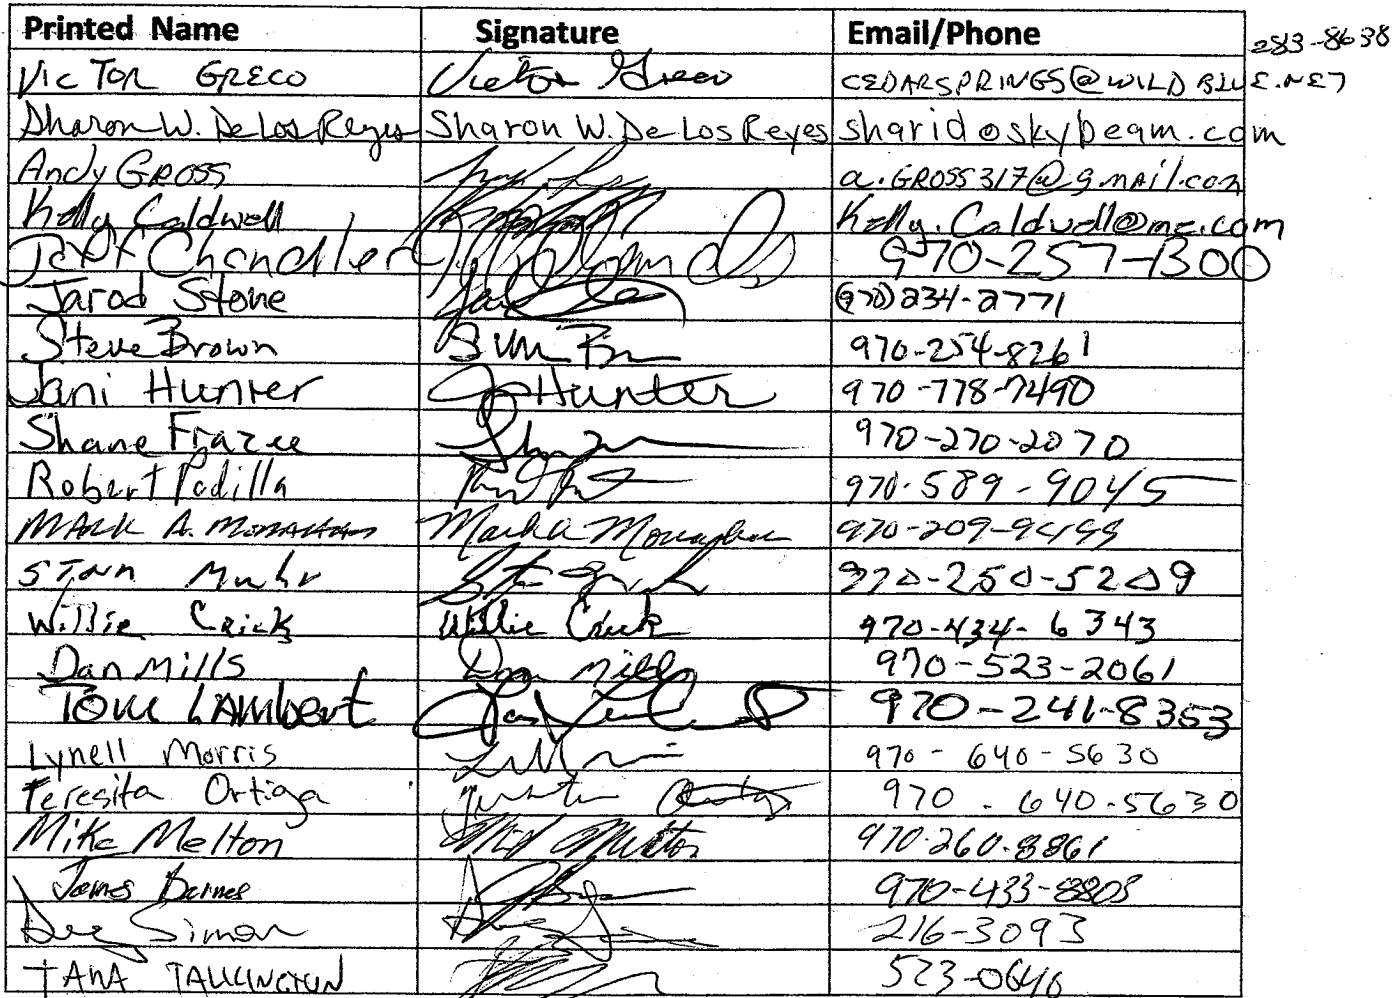 Printed Name Signature Email/Phone
283-8638
VICTOR GRECO Victor Greco CEDARSPRINGS@WILDBLUE.NET
Sharon W. De Los Reyes Sharon W. De Los Reyes sharido@skybeam.com
Andy GROSS a.GROSS317@gmail.com
Kelly Caldwell Kelly.Caldwell@me.com
Jeff Chandler 970-257-1300
Jarod Stone (970) 234-2771
Steve Brown 970-254-8261
Jani Hunter J Hunter 970-778-7490
Shane Frazee 970-270-2070
Robert Padilla 970-589-9045
MARK A. MONAGHAN Mark A Monaghan 970-209-9499
STAN Muhr 970-250-5209
Willie Crick Willie Crick 970-434-6343
Dan Mills Dan Mills 970-523-2061
Tom LAMbert 970-241-8353
Lynell Morris 970-640-5630
Teresita Ortiga 970-640-5630
Mike Melton Mike Melton 970-260-8861
James Barnes 970-433-8803
Simon 216-3093
TANA TALKINGTON 523-0646